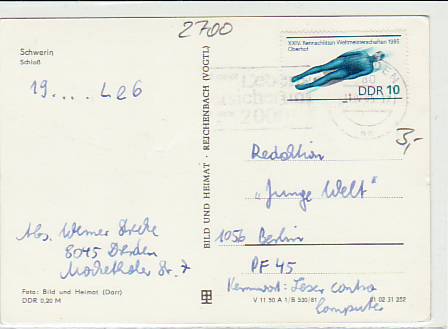 2700
Schwerin
Schloß
19....Le6
XXIV. Rennschlitten Weltmeisterschaften 1985
Oberhof
DDR 10
3,-
BILD UND HEIMAT · REICHENBACH (VOGTL)
Redaktion
„Junge Welt"
1056 Berlin
PF 45
Kennwort: Leser contra
Computer
Abs. Werner
8045 Dresden
Str. 7
Foto: Bild und Heimat (Darr)
DDR 0,20 M
V 11 50 A 1/B 530/81 01 02 31 252